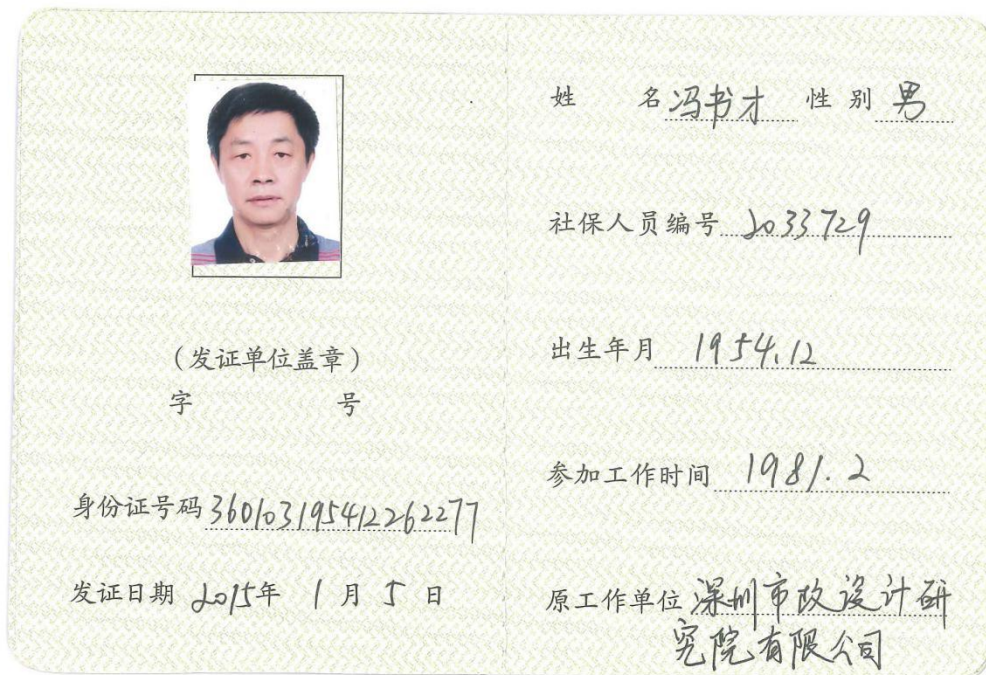 （发证单位盖章）
字 号
身份证号码 360103195412262277
发证日期 2015年 1月 5日
姓 名 冯书才 性别 男
社保人员编号 2033729
出生年月 1954.12
参加工作时间 1981.2
原工作单位 深圳市政设计研
究院有限公司